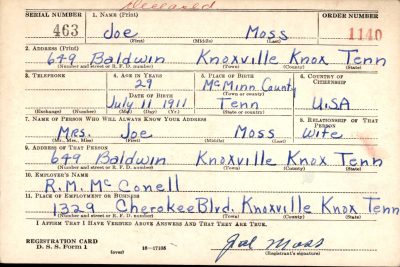 Deceased
SERIAL NUMBER 1. NAME (Print) ORDER NUMBER
463 Joe Moss 1140
(First) (Middle) (Last)
2. ADDRESS (Print)
649 Baldwin Knoxville Knox Tenn
(Number and street or R. F. D. number) (Town) (County) (State)
3. TELEPHONE 4. AGE IN YEARS 5. PLACE OF BIRTH 6. COUNTRY OF CITIZENSHIP
29 McMinn County
DATE OF BIRTH (Town or county)
July 11 1911 Tenn U.S.A
(Exchange) (Number) (Mo.) (Day) (Yr.) (State or country)
7. NAME OF PERSON WHO WILL ALWAYS KNOW YOUR ADDRESS 8. RELATIONSHIP OF THAT PERSON
Mrs. Joe Moss Wife
(Mr., Mrs., Miss) (First) (Middle) (Last)
9. ADDRESS OF THAT PERSON
649 Baldwin Knoxville Knox Tenn
(Number and street or R. F. D. number) (Town) (County) (State)
10. EMPLOYER'S NAME
R.M. McConell
11. PLACE OF EMPLOYMENT OR BUSINESS
1329 Cherokee Blvd. Knoxville Knox Tenn
(Number and street or R. F. D. number) (Town) (County) (State)
I AFFIRM THAT I HAVE VERIFIED ABOVE ANSWERS AND THAT THEY ARE TRUE.
REGISTRATION CARD
D. S. S. Form 1 (over) 16—17105 Joe Moss
(Registrant's signature)